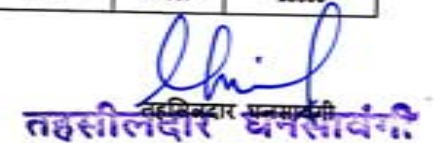 तहसिलदार घनसावंगी
तहसीलदार घनसावंगी